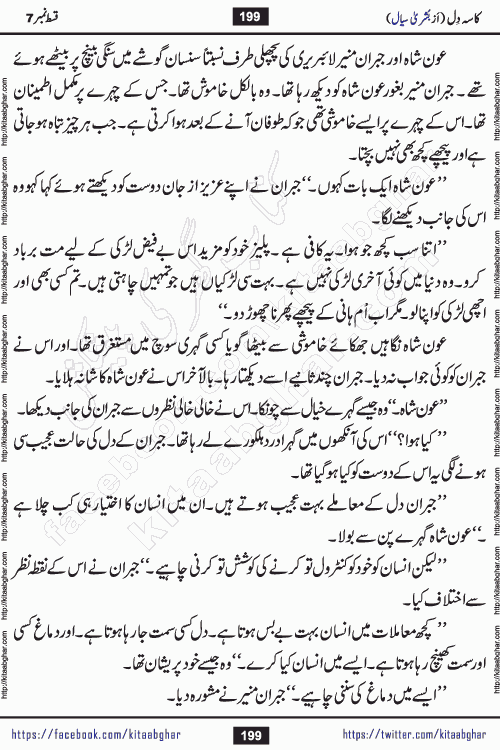 کاسہ دِل (از بشریٰ سیال)
199
قسط نمبر 7
عون شاہ اور جبران منیر لائبریری کی پچھلی طرف نسبتاً سنسان گوشے میں سنگی بینچ پر بیٹھے ہوئے
تھے۔ جبران منیر بغور عون شاہ کو دیکھ رہا تھا۔ وہ بالکل خاموش تھا۔ جس کے چہرے پر مکمل اطمینان
تھا۔ اس کے چہرے پر ایسے خاموشی تھی جو کہ طوفان آنے کے بعد ہوا کرتی ہے۔ جب ہر چیز تباہ ہو جاتی
ہے اور پیچھے کچھ بھی نہیں بچتا۔
’’عون شاہ ایک بات کہوں۔‘‘ جبران نے اپنے عزیز از جان دوست کو دیکھتے ہوئے کہا کہ وہ
اس کی جانب دیکھنے لگا۔
’’اتنا سب کچھ جو ہوا۔ یہ کافی ہے۔ پلیز خود کو مزید اس بے فیض لڑکی کے لیے مت برباد
کرو۔ وہ دنیا میں کوئی آخری لڑکی نہیں ہے۔ بہت سی لڑکیاں ہیں جو تمہیں چاہتی ہیں۔ تم کسی بھی اور
اچھی لڑکی کو اپنا لو۔ مگر اب اُم ہانی کے پیچھے پھرنا چھوڑ دو۔‘‘
عون شاہ نگاہیں جھکائے خاموشی سے بیٹھا گویا کسی گہری سوچ میں مستغرق تھا۔ اور اس نے
جبران کو کوئی جواب نہ دیا۔ جبران چند ثانیے اسے دیکھتا رہا۔ بالآخر اس نے عون شاہ کا شانہ ہلایا۔
’’عون شاہ۔‘‘ وہ جیسے گہرے خیال سے چونکا۔ اس نے خالی خالی نظروں سے جبران کی جانب دیکھا۔
’’کیا ہوا؟‘‘ اس کی آنکھوں میں گہرا درد ہلکورے لے رہا تھا۔ جبران کے دل کی حالت عجیب سی
ہونے لگی یہ اس کے دوست کو کیا ہو گیا تھا۔
’’جبران دل کے معاملے بہت عجیب ہوتے ہیں۔ ان میں انسان کا اختیار ہی کب چلا ہے
۔‘‘ عون شاہ گہرے پن سے بولا۔
’’لیکن انسان کو خود کو کنٹرول تو کرنے کی کوشش تو کرنی چاہیے۔‘‘ جبران نے اس کے نقطہ نظر
سے اختلاف کیا۔
’’کچھ معاملات میں انسان بہت بے بس ہوتا ہے۔ دل کسی سمت جا رہا ہوتا ہے۔ اور دماغ کسی
اور سمت کھینچ رہا ہوتا ہے۔ ایسے میں انسان کیا کرے۔‘‘ وہ جیسے خود پریشان تھا۔
’’ایسے میں دماغ کی سننی چاہیے۔‘‘ جبران منیر نے مشورہ دیا۔
https://facebook.com/kitaabghar
199
https://twitter.com/kitaabghar
http://kitaabghar.com
facebook.com/kitaabghar
kitaabghar.com